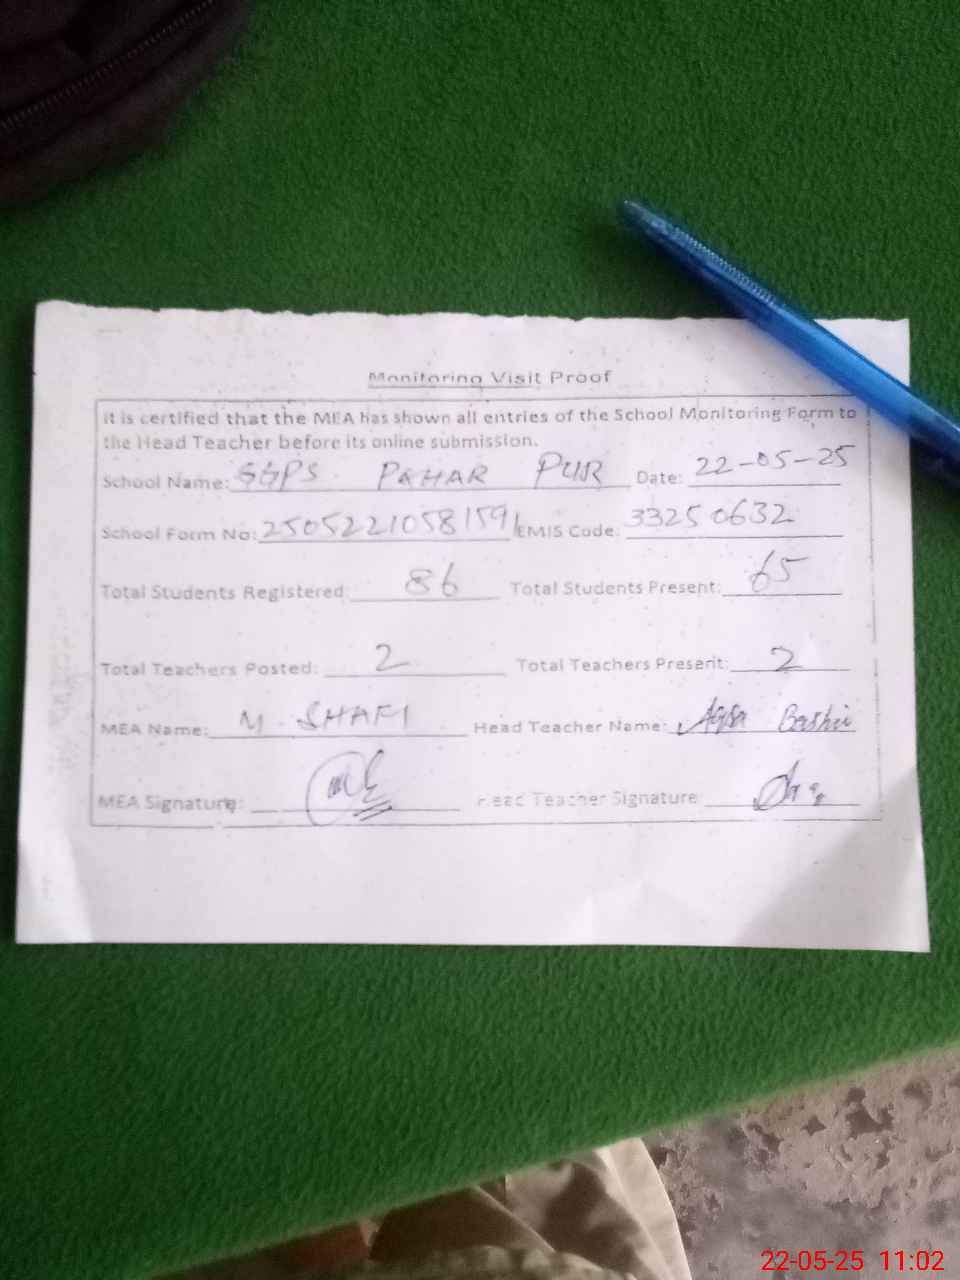 Monitoring Visit Proof
It is certified that the MEA has shown all entries of the School Monitoring Form to
the Head Teacher before its online submission.
School Name: GGPS PAHAR PUR Date: 22-05-25
School Form No: 2505221058159 EMIS Code: 33250632
Total Students Registered: 86 Total Students Present: 65
Total Teachers Posted: 2 Total Teachers Present: 2
MEA Name: M. SHAFI Head Teacher Name: Aqsa Bashir
MEA Signature: Head Teacher Signature
22-05-25 11:02